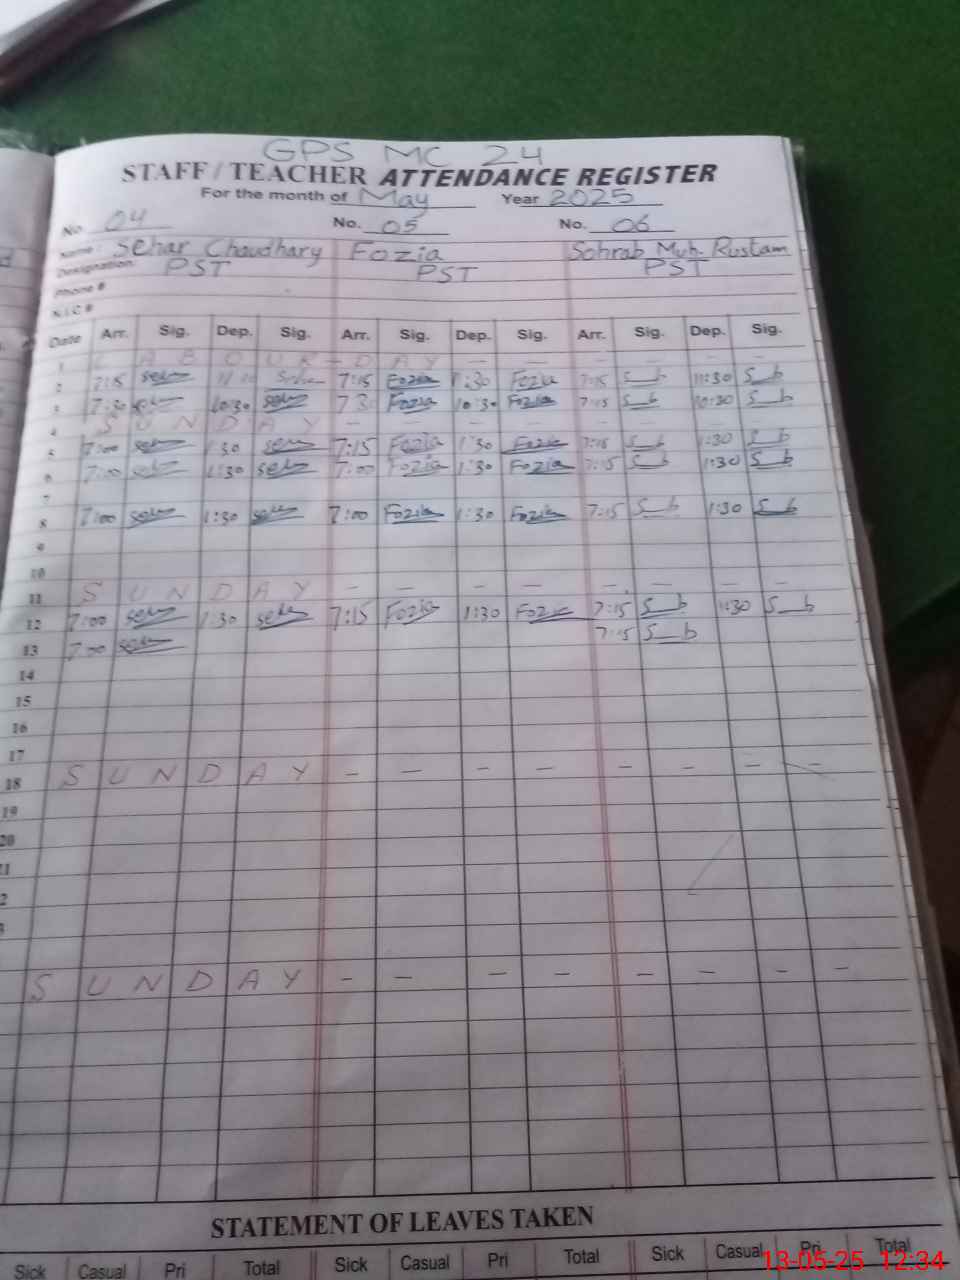 GPS MC 24
STAFF / TEACHER ATTENDANCE REGISTER
For the month of May Year 2025
No. 04 No. 05 No. 06
Name : Sehar Chaudhary Fozia Sohrab Muh. Rustam
Designation PST PST PST
Phone #
N.I.C #
Date Arr. Sig. Dep. Sig. Arr. Sig. Dep. Sig. Arr. Sig. Dep. Sig.
1 LABOUR-DAY - - - - - -
2 7:15 7:15 Fozia 11:30 Fozia 7:15 S__b 11:30 S__b
3 7:30 10:30 7:30 Fozia 10:30 Fozia 7:15 S__b 10:30 S__b
4 SUNDAY - - - - - - - -
5 7:00 1:30 7:15 Fozia 1:30 Fozia 7:15 S__b 1:30 S__b
6 7:00 1:30 7:00 Fozia 1:30 Fozia 7:15 S__b 1:30 S__b
7
8 7:00 1:30 7:00 Fozia 1:30 Fozia 7:15 S__b 1:30 S__b
9
10
11 SUNDAY - - - - - - - -
12 7:00 1:30 7:15 Fozia 1:30 Fozia 7:15 S__b 1:30 S__b
13 7:00 7:15 S__b
14
15
16
17
18 SUNDAY - - - - - - - -
19
20
SUNDAY - - - - - - - -
STATEMENT OF LEAVES TAKEN
Sick Casual Pri Total Sick Casual Pri Total Sick Casual Pri Total
13-05-25 12:34